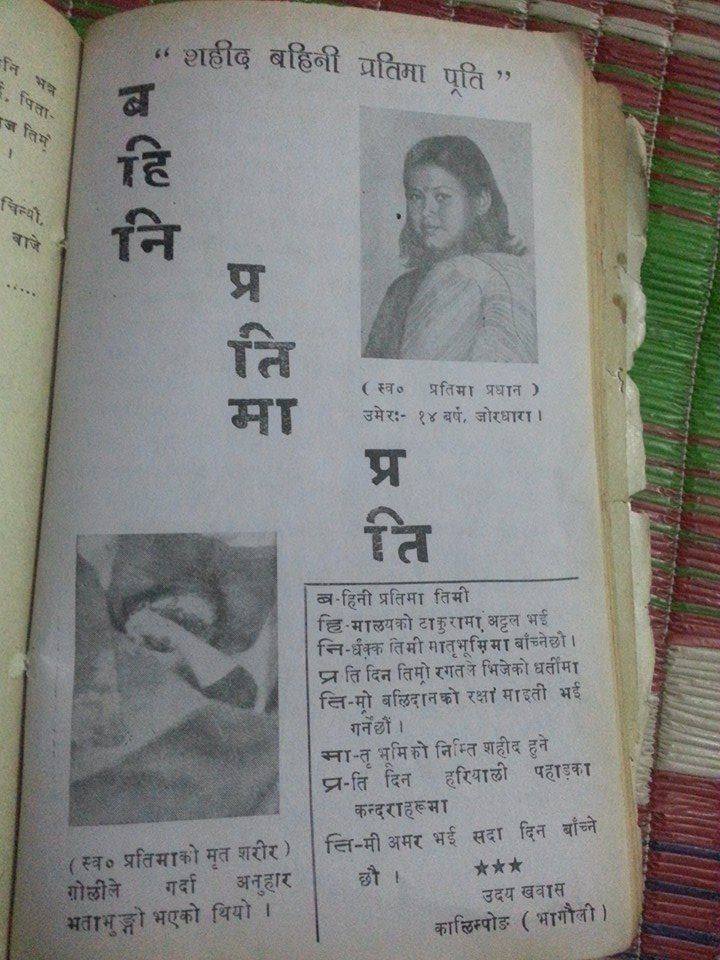 नि भन्न
पिता-
।
चिन्यौ,
बाजे
.....
“ शहीद बहिनी प्रतिमा प्रति ”
ब
हि
नि
प्र
ति
मा
प्र
ति
( स्व० प्रतिमा प्रधान )
उमेरः- १४ बर्ष, जोरधारा ।
( स्व० प्रतिमाको मृत शरीर )
गोलीले गर्दा अनुहार
भताभुङ्गो भएको थियो ।
ब-हिनी प्रतिमा तिमी
हि-मालयको टाकुरामा अट्टल भई
नि-र्धक्क तिमी मातृभूमिमा बाँच्नेछौ ।
प्र ति दिन तिम्रो रगतले भिजेको धर्तीमा
ति-म्रो बलिदानको रक्षा माइती भई
गर्नेछौं ।
मा-तृ भूमिको निम्ति शहीद हुने
प्र-ति दिन हरियाली पहाड़का
कन्दराहरूमा
ति-मी अमर भई सदा दिन बाँच्ने
छौ ।
★★★
उदय खवास
कालिम्पोङ ( भागौली )